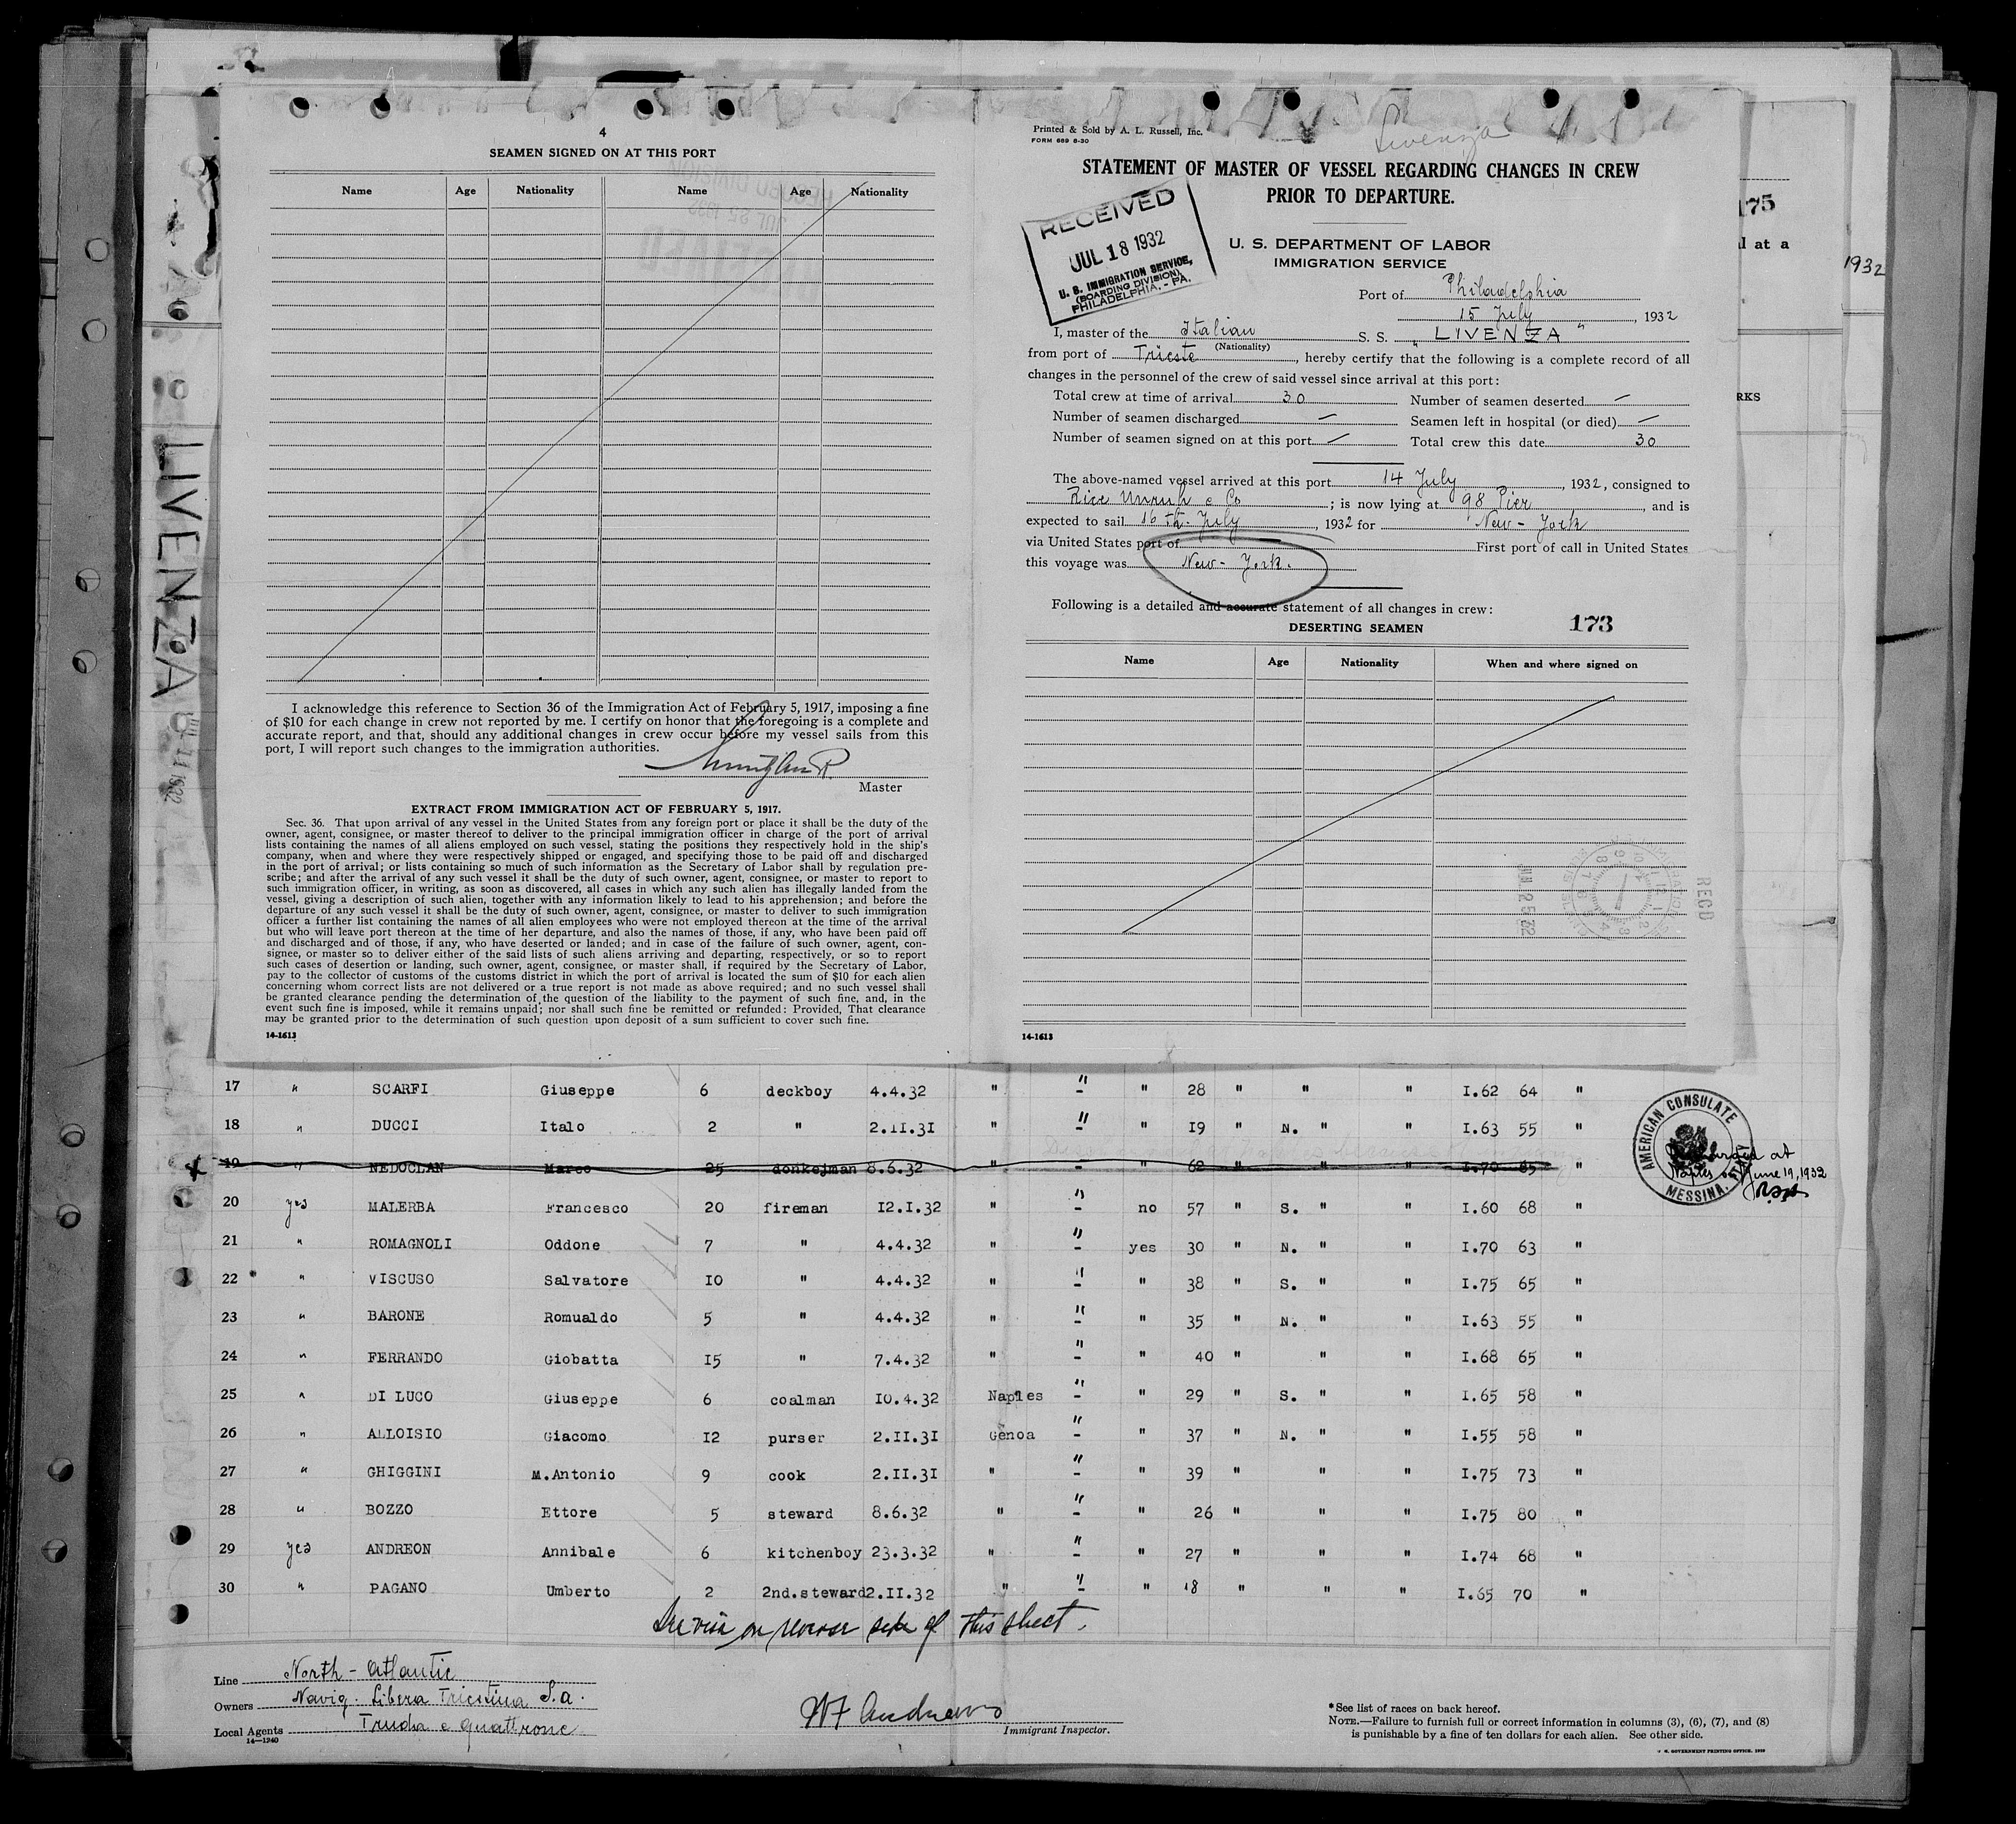 4
SEAMEN SIGNED ON AT THIS PORT
Name Age Nationality Name Age Nationality
I acknowledge this reference to Section 36 of the Immigration Act of February 5, 1917, imposing a fine
of $10 for each change in crew not reported by me. I certify on honor that the foregoing is a complete and
accurate report, and that, should any additional changes in crew occur before my vessel sails from this
port, I will report such changes to the immigration authorities.
Master
EXTRACT FROM IMMIGRATION ACT OF FEBRUARY 5, 1917.
Sec. 36. That upon arrival of any vessel in the United States from any foreign port or place it shall be the duty of the
owner, agent, consignee, or master thereof to deliver to the principal immigration officer in charge of the port of arrival
lists containing the names of all aliens employed on such vessel, stating the positions they respectively hold in the ship's
company, when and where they were respectively shipped or engaged, and specifying those to be paid off and discharged
in the port of arrival; or lists containing so much of such information as the Secretary of Labor shall by regulation pre-
scribe; and after the arrival of any such vessel it shall be the duty of such owner, agent, consignee, or master to report to
such immigration officer, in writing, as soon as discovered, all cases in which any such alien has illegally landed from the
vessel, giving a description of such alien, together with any information likely to lead to his apprehension; and before the
departure of any such vessel it shall be the duty of such owner, agent, consignee, or master to deliver to such immigration
officer a further list containing the names of all alien employees who were not employed thereon at the time of the arrival
but who will leave port thereon at the time of her departure, and also the names of those, if any, who have been paid off
and discharged and of those, if any, who have deserted or landed; and in case of the failure of such owner, agent, con-
signee, or master so to deliver either of the said lists of such aliens arriving and departing, respectively, or so to report
such cases of desertion or landing, such owner, agent, consignee, or master shall, if required by the Secretary of Labor,
pay to the collector of customs of the customs district in which the port of arrival is located the sum of $10 for each alien
concerning whom correct lists are not delivered or a true report is not made as above required; and no such vessel shall
be granted clearance pending the determination of the question of the liability to the payment of such fine, and, in the
event such fine is imposed, while it remains unpaid; nor shall such fine be remitted or refunded: Provided, That clearance
may be granted prior to the determination of such question upon deposit of a sum sufficient to cover such fine.
14-1613
Printed & Sold by A. L. Russell, Inc.
FORM 689 6-30
Livenza
STATEMENT OF MASTER OF VESSEL REGARDING CHANGES IN CREW
PRIOR TO DEPARTURE.
RECEIVED
JUL 18 1932
U. S. IMMIGRATION SERVICE,
(BOARDING DIVISION)
PHILADELPHIA, - PA.
U. S. DEPARTMENT OF LABOR
IMMIGRATION SERVICE
Port of Philadelphia
15 July, 1932
I, master of the Italian S. S. "LIVENZA"
(Nationality)
from port of Trieste, hereby certify that the following is a complete record of all
changes in the personnel of the crew of said vessel since arrival at this port:
Total crew at time of arrival 30 Number of seamen deserted —
Number of seamen discharged — Seamen left in hospital (or died) —
Number of seamen signed on at this port — Total crew this date 30
The above-named vessel arrived at this port 14 July, 1932, consigned to
Rice Unruh & Co; is now lying at 98 Pier, and is
expected to sail 16th July, 1932 for New-York
via United States port of First port of call in United States
this voyage was New-York.
Following is a detailed and accurate statement of all changes in crew:
173
DESERTING SEAMEN
Name Age Nationality When and where signed on
RECD
14-1613
175
l at a
1932
RKS
LIVENZA
17 " SCARFI Giuseppe 6 deckboy 4.4.32 " " " 28 " " " I.62 64 "
18 " DUCCI Italo 2 " 2.II.3I " " " I9 " N. " " I.63 55 "
19 " NEDOCLAN Marco 25 donkejman 8.6.32 " - " 62 " " " I.70 65 "
20 yes MALERBA Francesco 20 fireman I2.I.32 " " no 57 " S. " " I.60 68 "
21 " ROMAGNOLI Oddone 7 " 4.4.32 " " yes 30 " N. " " I.70 63 "
22 " VISCUSO Salvatore IO " 4.4.32 " " " 38 " S. " " I.75 65 "
23 " BARONE Romualdo 5 " 4.4.32 " " " 35 " N. " " I.63 55 "
24 " FERRANDO Giobatta I5 " 7.4.32 " " " 40 " " " I.68 65 "
25 " DI LUCO Giuseppe 6 coalman IO.4.32 Naples " " 29 " S. " " I.65 58 "
26 " ALLOISIO Giacomo I2 purser 2.II.3I Genoa " " 37 " N. " " I.55 58 "
27 " GHIGGINI M.Antonio 9 cook 2.II.3I " " " 39 " " " I.75 73 "
28 " BOZZO Ettore 5 steward 8.6.32 " " " 26 " " " I.75 80 "
29 yes ANDREON Annibale 6 kitchenboy 23.3.32 " " " 27 " " " I.74 68 "
30 " PAGANO Umberto 2 2nd.steward 2.II.32 " " " I8 " " " I.65 70 "
AMERICAN CONSULATE
MESSINA, ITALY
Discharged at
Naples on June 19, 1932
See visa on reverse side of this sheet.
Line North-Atlantic
Owners Navig. Libera Triestina S.a.
Local Agents Trucha e Quattrone
14—1240
W F Andrews
Immigrant Inspector.
*See list of races on back hereof.
NOTE.—Failure to furnish full or correct information in columns (3), (6), (7), and (8)
is punishable by a fine of ten dollars for each alien. See other side.
U. S. GOVERNMENT PRINTING OFFICE. 1928